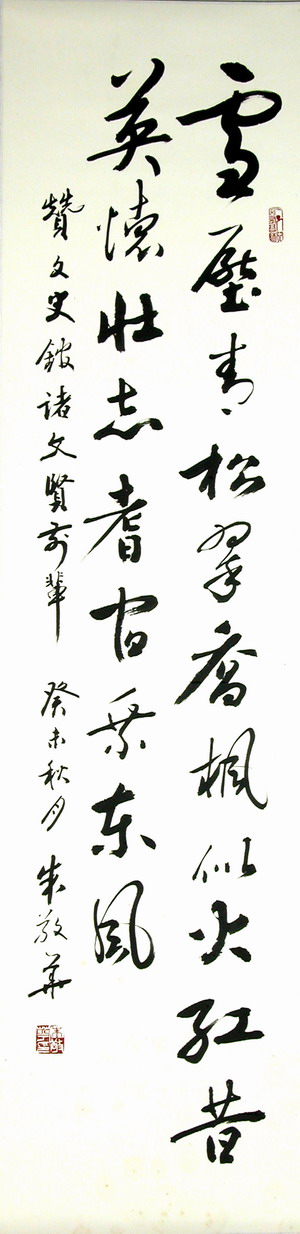 雪壓青松翠喬楓似火紅昔
英懷壯志耆宿乘東風
贊文史館諸文賢前輩 癸未秋月 朱敬華